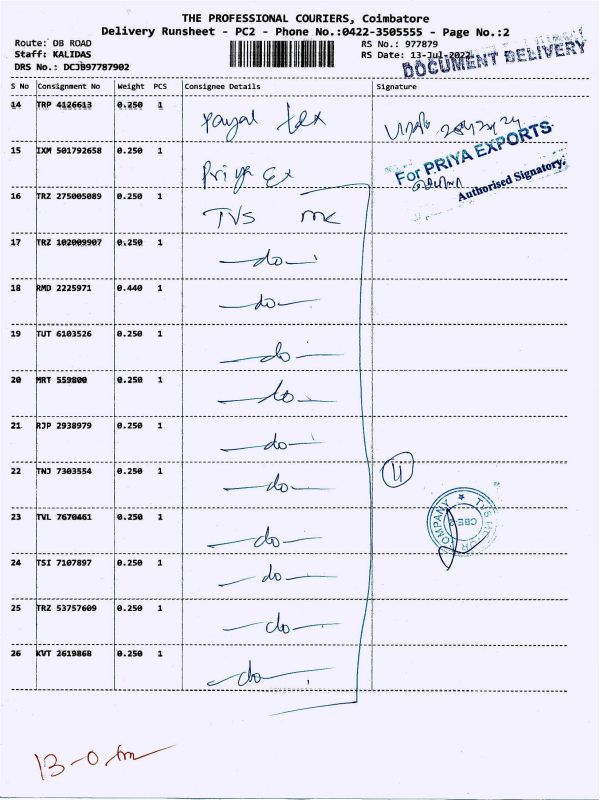 THE PROFESSIONAL COURIERS, Coimbatore
Delivery Runsheet - PC2 - Phone No.:0422-3505555 - Page No.:2
Route: DB ROAD
RS No.: 977879
Staff: KALIDAS
RS Date: 13-Jul-2022
DOCUMENT DELIVERY
DRS No.: DCJB97787902
S No Consignment No Weight PCS Consignee Details Signature
14 TRP 4126613 0.250 1 Payal Tex
15 IXM 501792658 0.250 1 Priya Ex
For PRIYA EXPORTS
Authorised Signatory.
16 TRZ 275005089 0.250 1 TVS mc
17 TRZ 102009907 0.250 1 -do-
18 RMD 2225971 0.440 1 -do-
19 TUT 6103526 0.250 1 -do-
20 MRT 559800 0.250 1 -do-
21 RJP 2938979 0.250 1 -do-
22 TNJ 7303554 0.250 1 -do- 11
23 TVL 7670461 0.250 1 -do-
TVS MOTOR COMPANY
CBE
24 TSI 7107897 0.250 1 -do-
25 TRZ 53757609 0.250 1 -do-
26 KVT 2619868 0.250 1 -do-
13-0